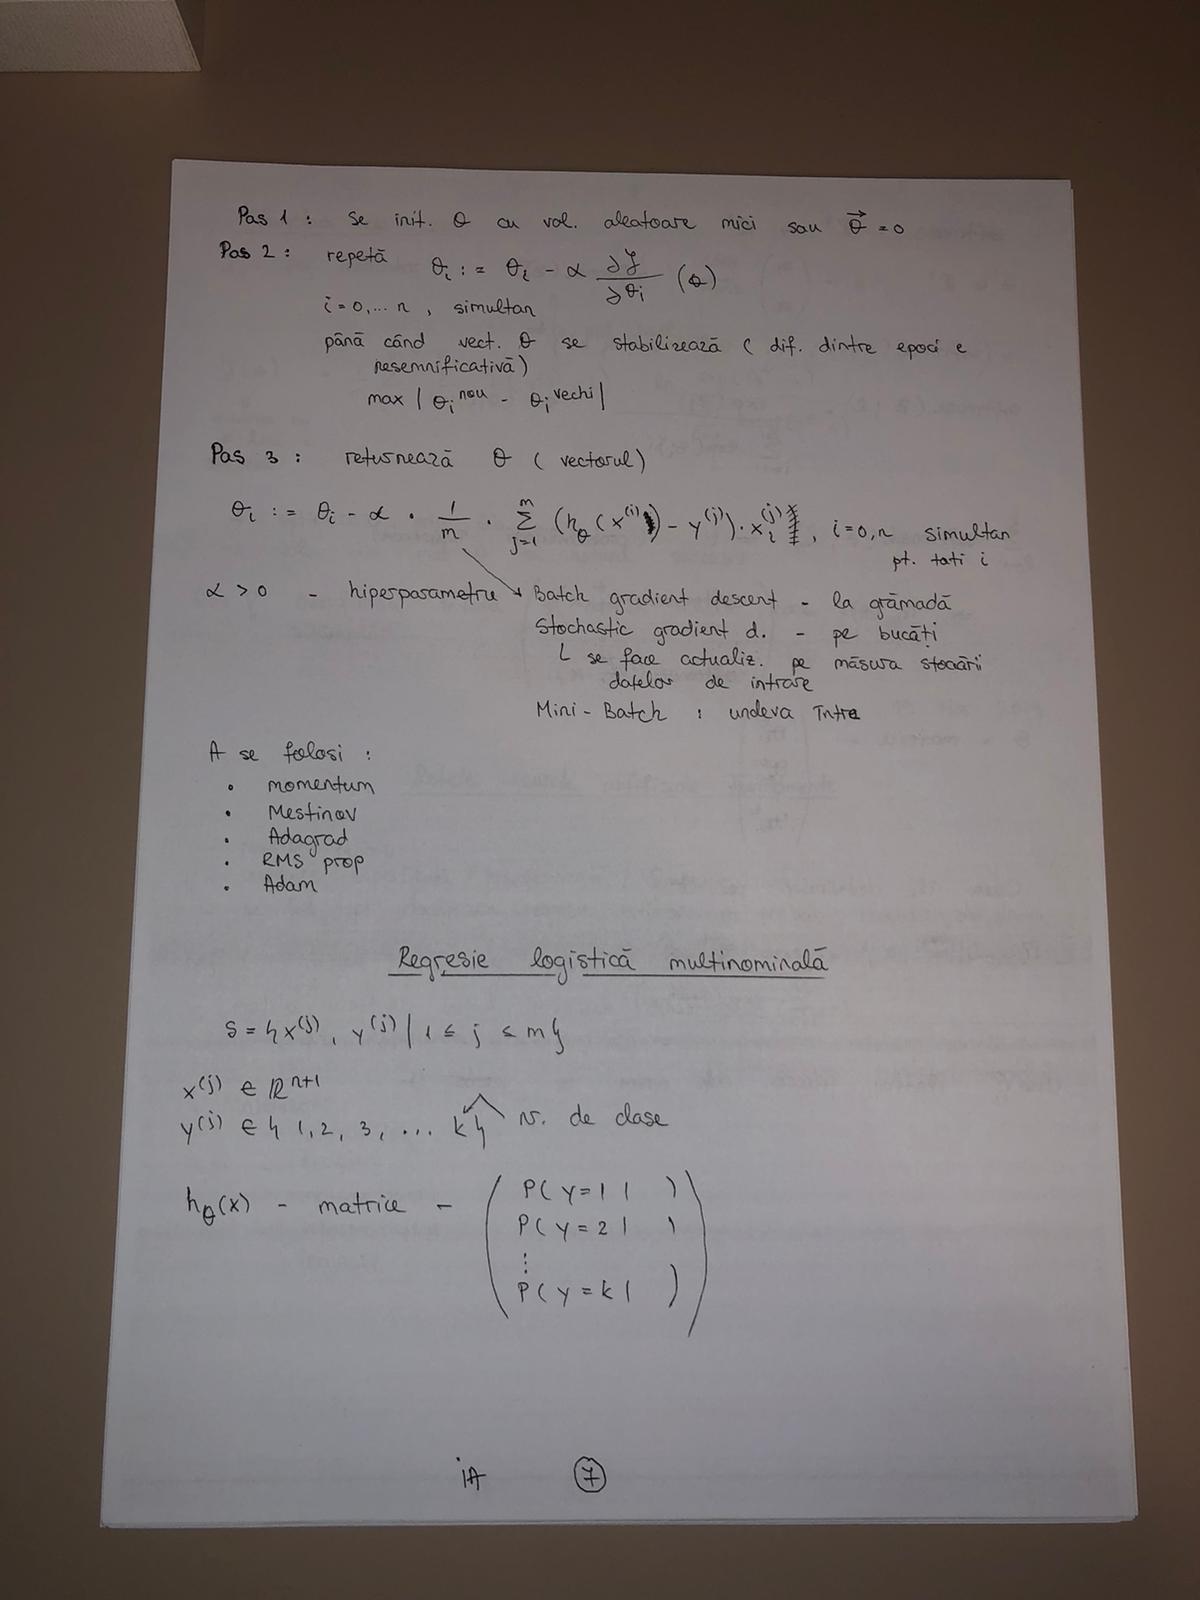 Pas 1 : se init. θ cu val. aleatoare mici sau θ⃗ = 0
Pas 2 : repetă θi := θi - α ∂J/∂θi (θ)
i = 0,... n , simultan
până când vect. θ se stabilizează ( dif. dintre epoci e
nesemnificativă)
max | θi^nou - θi^vechi |
Pas 3 : returnează θ ( vectorul)
θi := θi - α · 1/m · Σ_{j=1}^{m} (hθ(x^(i)) - y^(j)) · xi^(j) , i = 0,n simultan
pt. tati i
α > 0 - hiperparametru Batch gradient descent - la grămadă
Stochastic gradient d. - pe bucăți
L se face actualiz. pe măsura stocării
datelor de intrare
Mini - Batch : undeva între
A se folosi :
• momentum
• Mestinov
• Adagrad
• RMS prop
• Adam
Regresie logistică multinominală
S = {x^(j), y^(j) | 1 ≤ j ≤ m}
x^(j) ∈ R^n+1
y^(j) ∈ { 1, 2, 3, ... k} nr. de clase
hθ(x) - matrice - ( P( y = 1 | )
P( y = 2 | )
⋮
P( y = k | ) )
iA 7